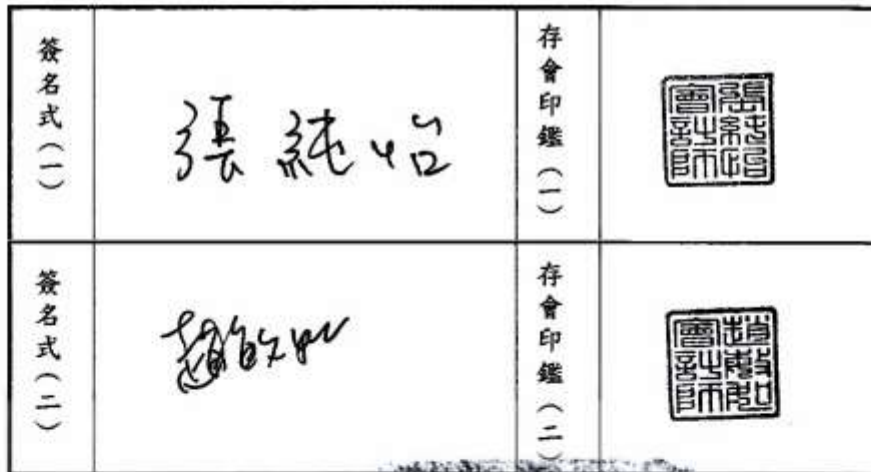 簽名式（一）
張純怡
存會印鑑（一）
張純怡
會計師
簽名式（二）
趙敏如
存會印鑑（二）
趙敏如
會計師